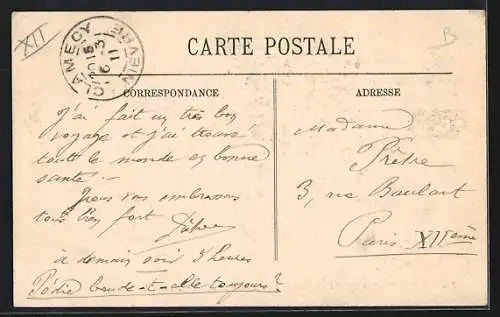 XII
CLAMECY
NIEVRE
CARTE POSTALE
CORRESPONDANCE
J'ai fait un très bon
voyage et j'ai trouvé
tout le monde en bonne
santé. -
Nous vous embrassons
tous très fort
à demain soir 5 heures
boude-t-elle toujours?
ADRESSE
Madame
Prêtre
3, rue Baulant
Paris XIIème